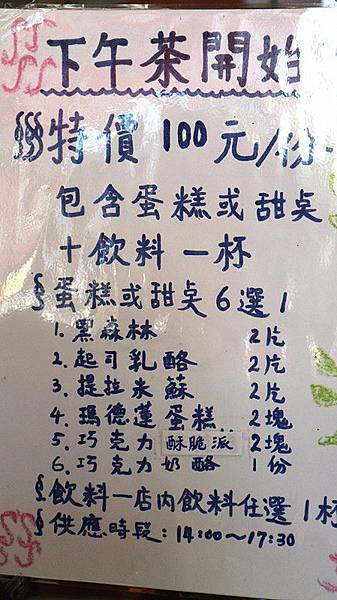 下午茶開始
特價100元/份
包含蛋糕或甜奌
+飲料一杯
§蛋糕或甜奌6選1
1.黑森林 2片
2.起司乳酪 2片
3.提拉米蘇 2片
4.瑪德蓮蛋糕.. 2塊
5.巧克力酥脆派 2塊
6.巧克力奶酪 1份
§.飲料一店內飲料任選1杯
§供應時段:14:00～17:30